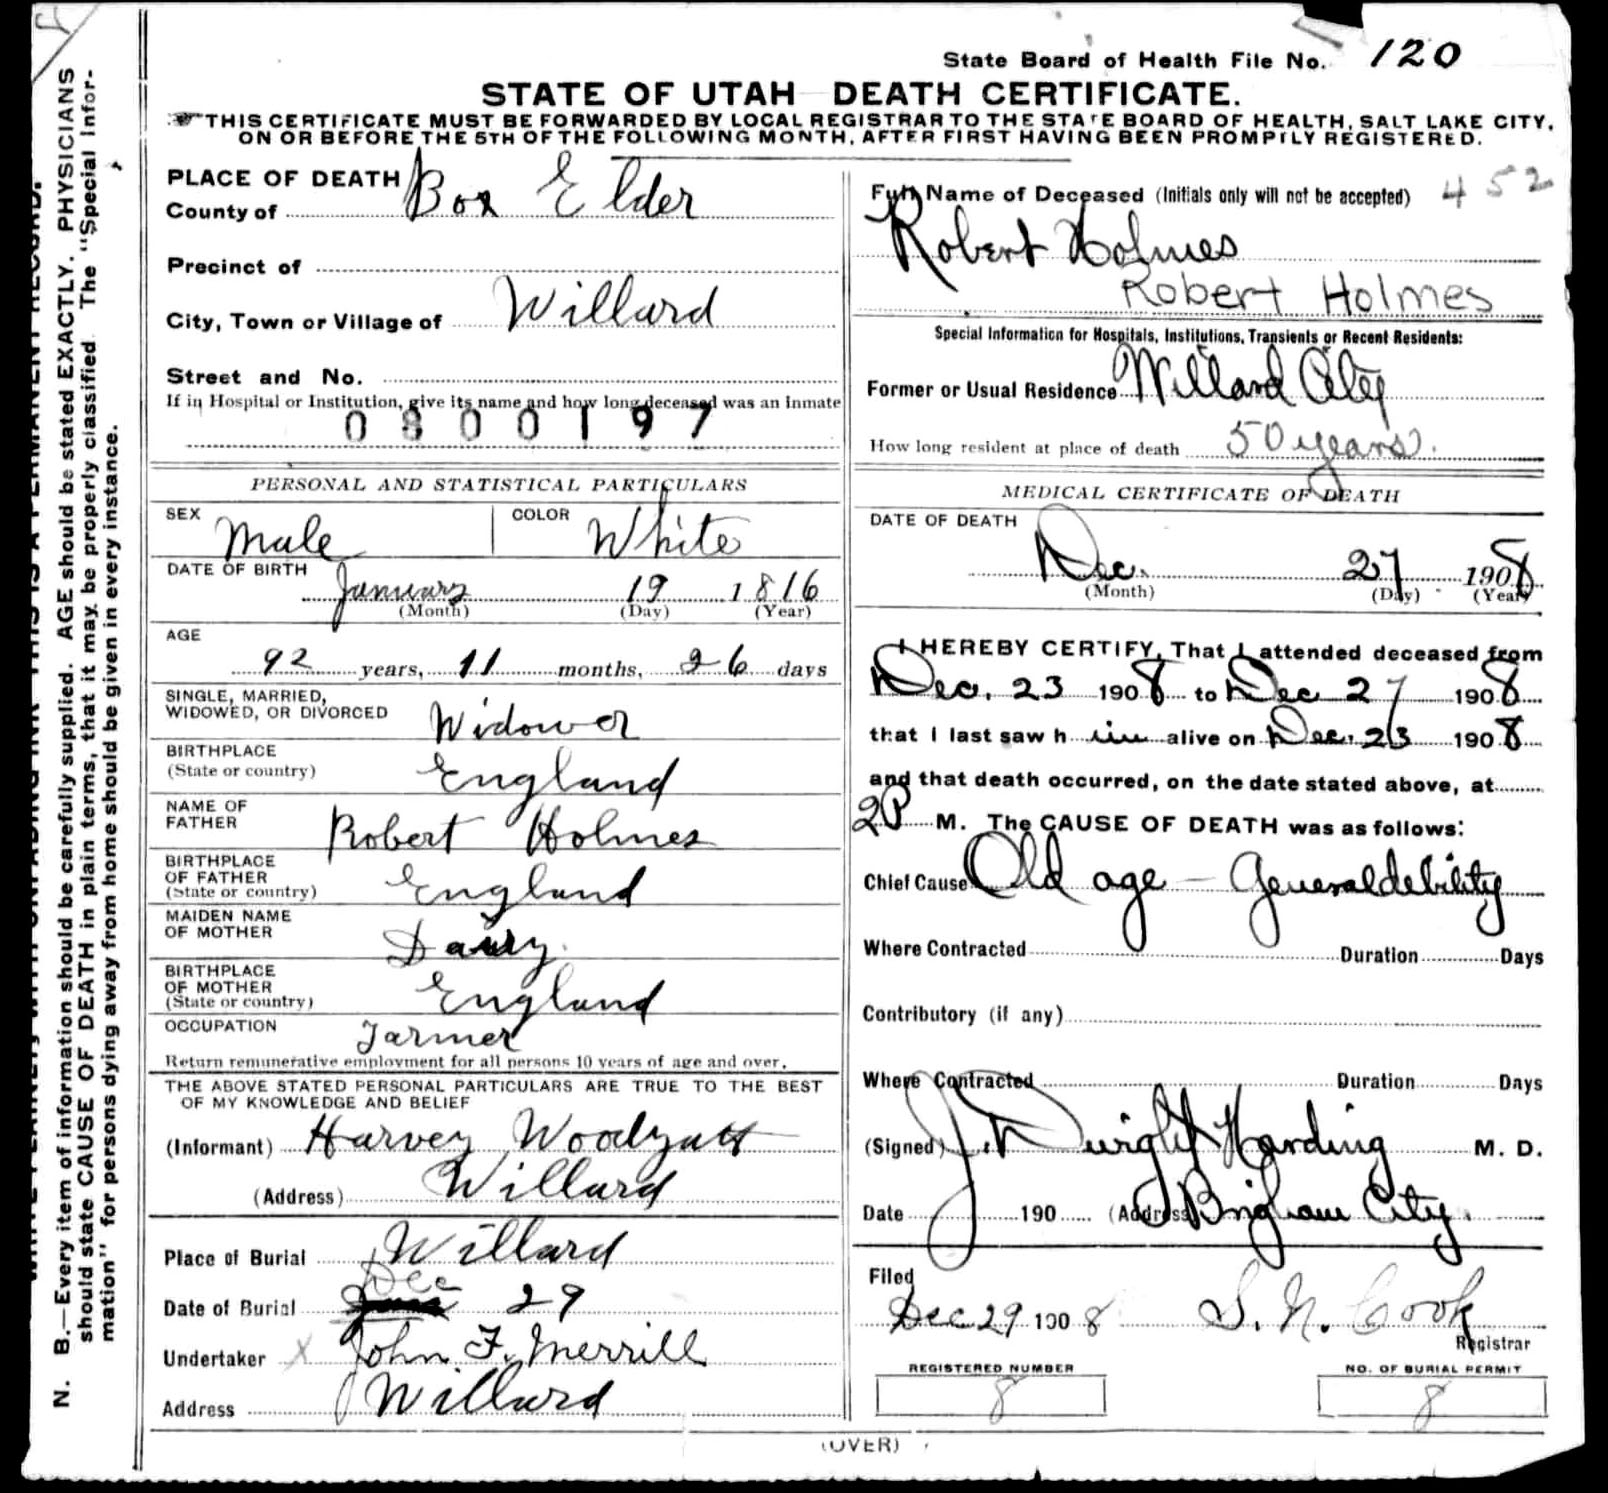 State Board of Health File No. 120
STATE OF UTAH DEATH CERTIFICATE.
THIS CERTIFICATE MUST BE FORWARDED BY LOCAL REGISTRAR TO THE STATE BOARD OF HEALTH, SALT LAKE CITY,
ON OR BEFORE THE 5TH OF THE FOLLOWING MONTH, AFTER FIRST HAVING BEEN PROMPTLY REGISTERED.
N. B.—Every item of information should be carefully supplied. AGE should be stated EXACTLY. PHYSICIANS
should state CAUSE OF DEATH in plain terms, that it may be properly classified. The "Special Infor-
mation" for persons dying away from home should be given in every instance.
PLACE OF DEATH
County of Box Elder
Precinct of
City, Town or Village of Willard
Street and No.
If in Hospital or Institution, give its name and how long deceased was an inmate
0800197
PERSONAL AND STATISTICAL PARTICULARS
SEX Male COLOR White
DATE OF BIRTH
January 19 1816
(Month) (Day) (Year)
AGE
92 years, 11 months, 26 days
SINGLE, MARRIED,
WIDOWED, OR DIVORCED Widower
BIRTHPLACE
(State or country) England
NAME OF
FATHER Robert Holmes
BIRTHPLACE
OF FATHER
(State or country) England
MAIDEN NAME
OF MOTHER
BIRTHPLACE
OF MOTHER
(State or country) England
OCCUPATION Farmer
Return remunerative employment for all persons 10 years of age and over.
THE ABOVE STATED PERSONAL PARTICULARS ARE TRUE TO THE BEST
OF MY KNOWLEDGE AND BELIEF
(Informant) Harvey Woodyatt
(Address) Willard
Place of Burial Willard
Date of Burial Dec 29
Undertaker x John F. Merrill
Address Willard
Full Name of Deceased (Initials only will not be accepted) 452
Robert Holmes
Robert Holmes
Special Information for Hospitals, Institutions, Transients or Recent Residents:
Former or Usual Residence Willard City
How long resident at place of death 50 years.
MEDICAL CERTIFICATE OF DEATH
DATE OF DEATH
Dec. 27 1908
(Month) (Day) (Year)
I HEREBY CERTIFY, That I attended deceased from
Dec. 23 1908 to Dec 27 1908
that I last saw h im alive on Dec. 23 1908
and that death occurred, on the date stated above, at
2P M. The CAUSE OF DEATH was as follows:
Chief Cause Old age - General debility
Where Contracted Duration Days
Contributory (if any)
Where Contracted Duration Days
(Signed) J. Dwight Harding M. D.
Date 190 (Address) Brigham City.
Filed
Dec 29 1908 S. N. Cook
Registrar
REGISTERED NUMBER NO. OF BURIAL PERMIT
8 8
(OVER)